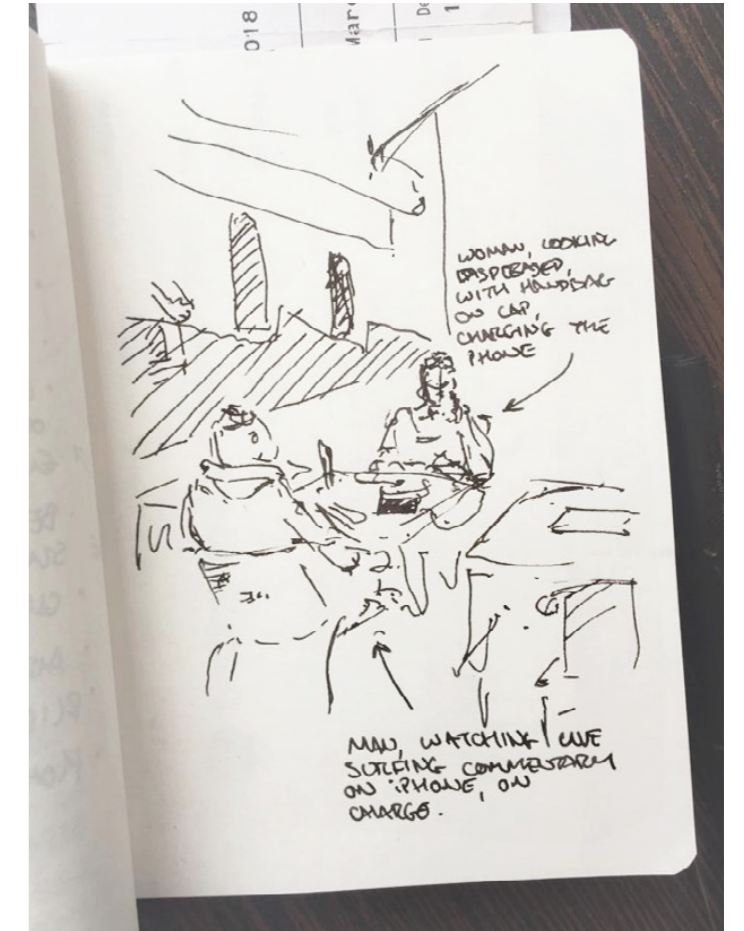 018
Mar
De
1
WOMAN, LOOKING
WITH HANDBAG
ON LAP,
CHARGING THE
PHONE
MAN, WATCHING LIVE
SURFING COMMENTARY
ON iPHONE, ON
CHARGE.